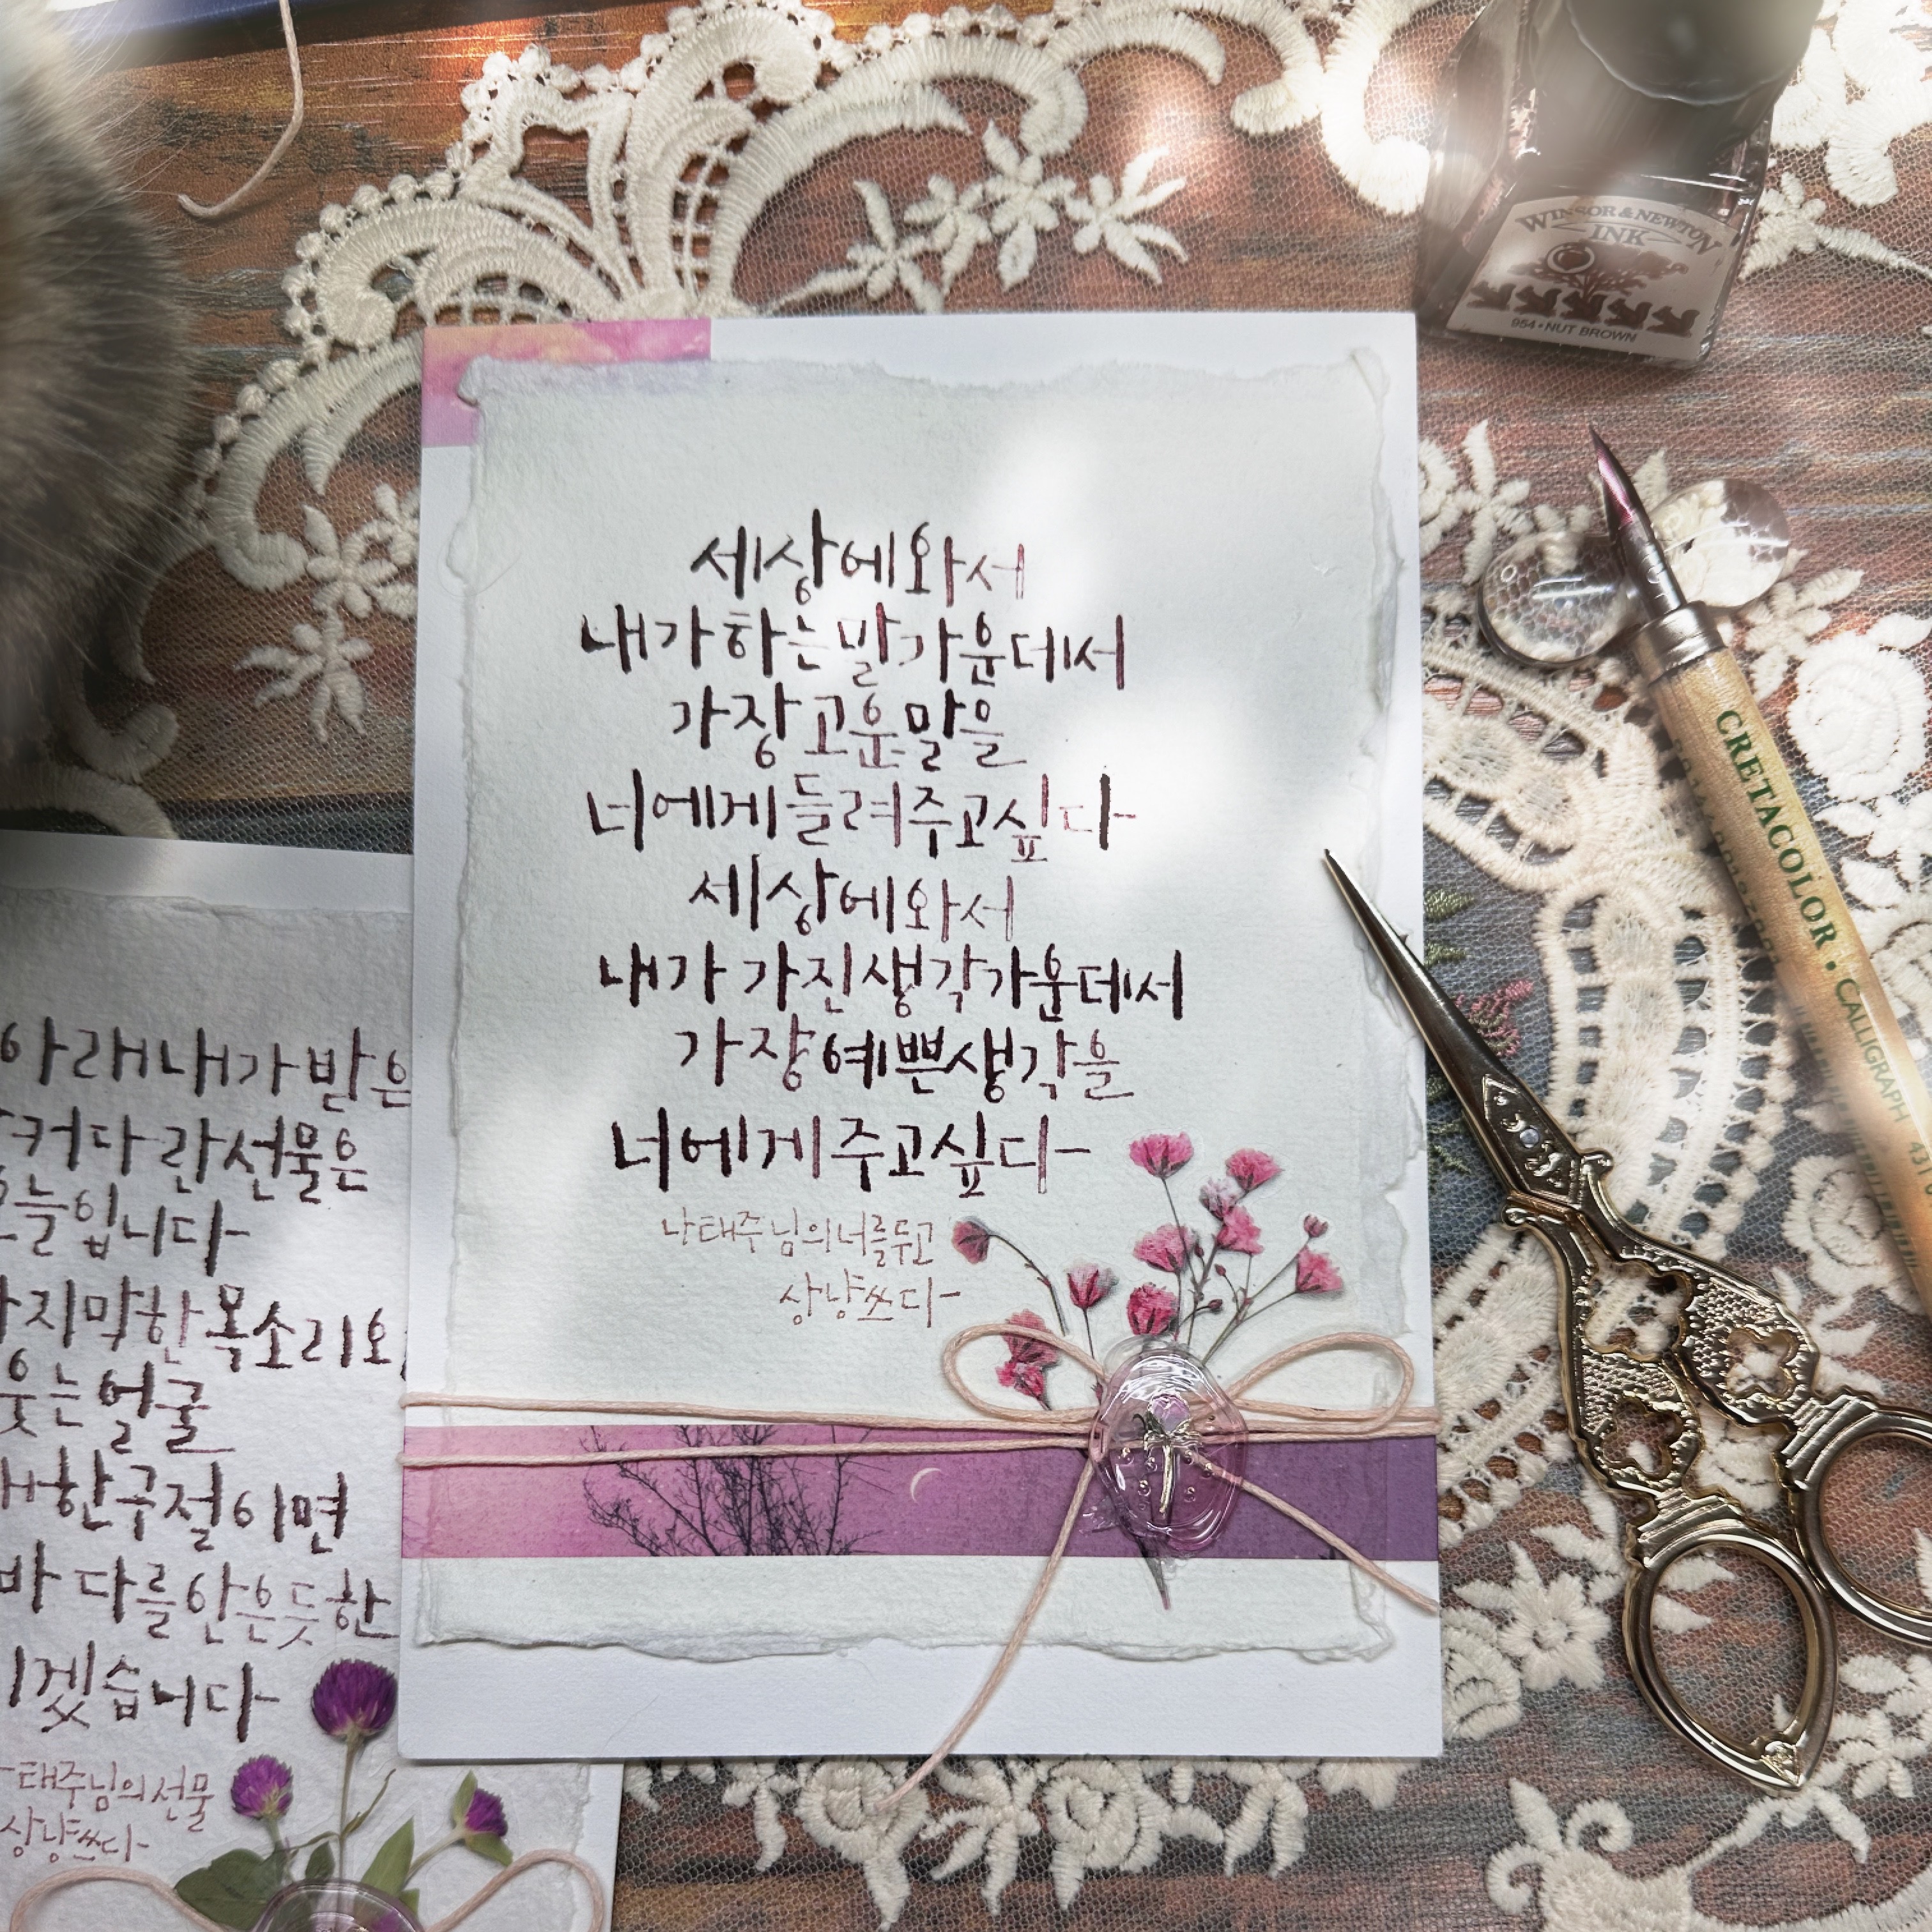 세상에 와서
내가 하는 말 가운데서
가장 고운 말을
너에게 들려주고 싶다
세상에 와서
내가 가진 생각 가운데서
가장 예쁜 생각을
너에게 주고 싶다
나태주님의 너를 두고
상냥쓰다
아래 내가 받은
커다란 선물은
오늘입니다
지막한 목소리
웃는 얼굴
한 구절이면
바다를 안은 듯한
겠습니다
태주님의 선물
상냥쓰다
WINSOR & NEWTON
INK
954 • NUT BROWN
CRETACOLOR • CALLIGRAPH